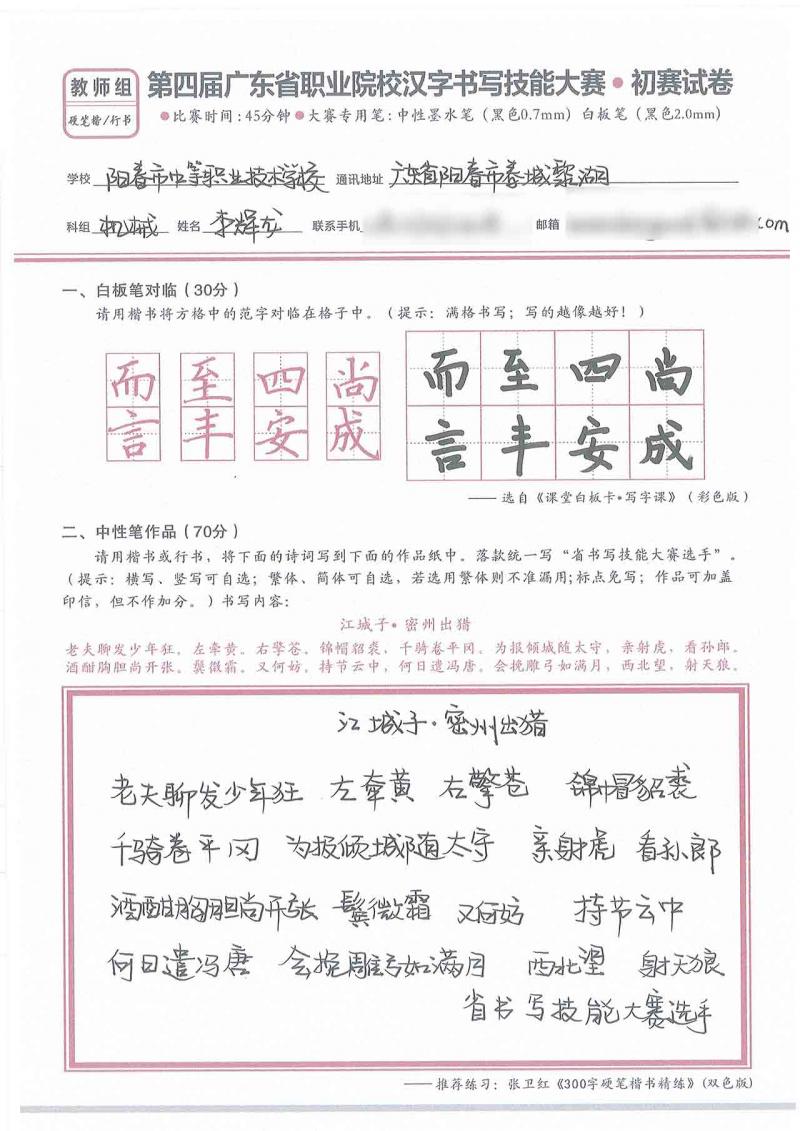 教师组
硬笔楷/行书
第四届广东省职业院校汉字书写技能大赛•初赛试卷
●比赛时间:45分钟●大赛专用笔:中性墨水笔(黑色0.7mm)白板笔(黑色2.0mm)
学校 阳春市中等职业技术学校 通讯地址 广东省阳春市春城霞湖
科组 机械 姓名 李辉龙 联系手机 邮箱 .com
一、白板笔对临(30分)
请用楷书将方格中的范字对临在格子中。(提示:满格书写;写的越像越好!)
而 至 四 尚 而 至 四 尚
言 丰 安 成 言 丰 安 成
——选自《课堂白板卡•写字课》(彩色版)
二、中性笔作品(70分)
请用楷书或行书,将下面的诗词写到下面的作品纸中。落款统一写“省书写技能大赛选手”。
(提示:横写、竖写可自选;繁体、简体可自选,若选用繁体则不准漏用;标点免写;作品可加盖
印信,但不作加分。)书写内容:
江城子•密州出猎
老夫聊发少年狂,左牵黄。右擎苍。锦帽貂裘,千骑卷平冈。为报倾城随太守,亲射虎,看孙郎。
酒酣胸胆尚开张。鬓微霜。又何妨,持节云中,何日遣冯唐。会挽雕弓如满月,西北望,射天狼。
江城子·密州出猎
老夫聊发少年狂 左牵黄 右擎苍 锦帽貂裘
千骑卷平冈 为报倾城随太守 亲射虎 看孙郎
酒酣胸胆尚开张 鬓微霜 又何妨 持节云中
何日遣冯唐 会挽雕弓如满月 西北望 射天狼
省书写技能大赛选手
——推荐练习:张卫红《300字硬笔楷书精练》(双色版)